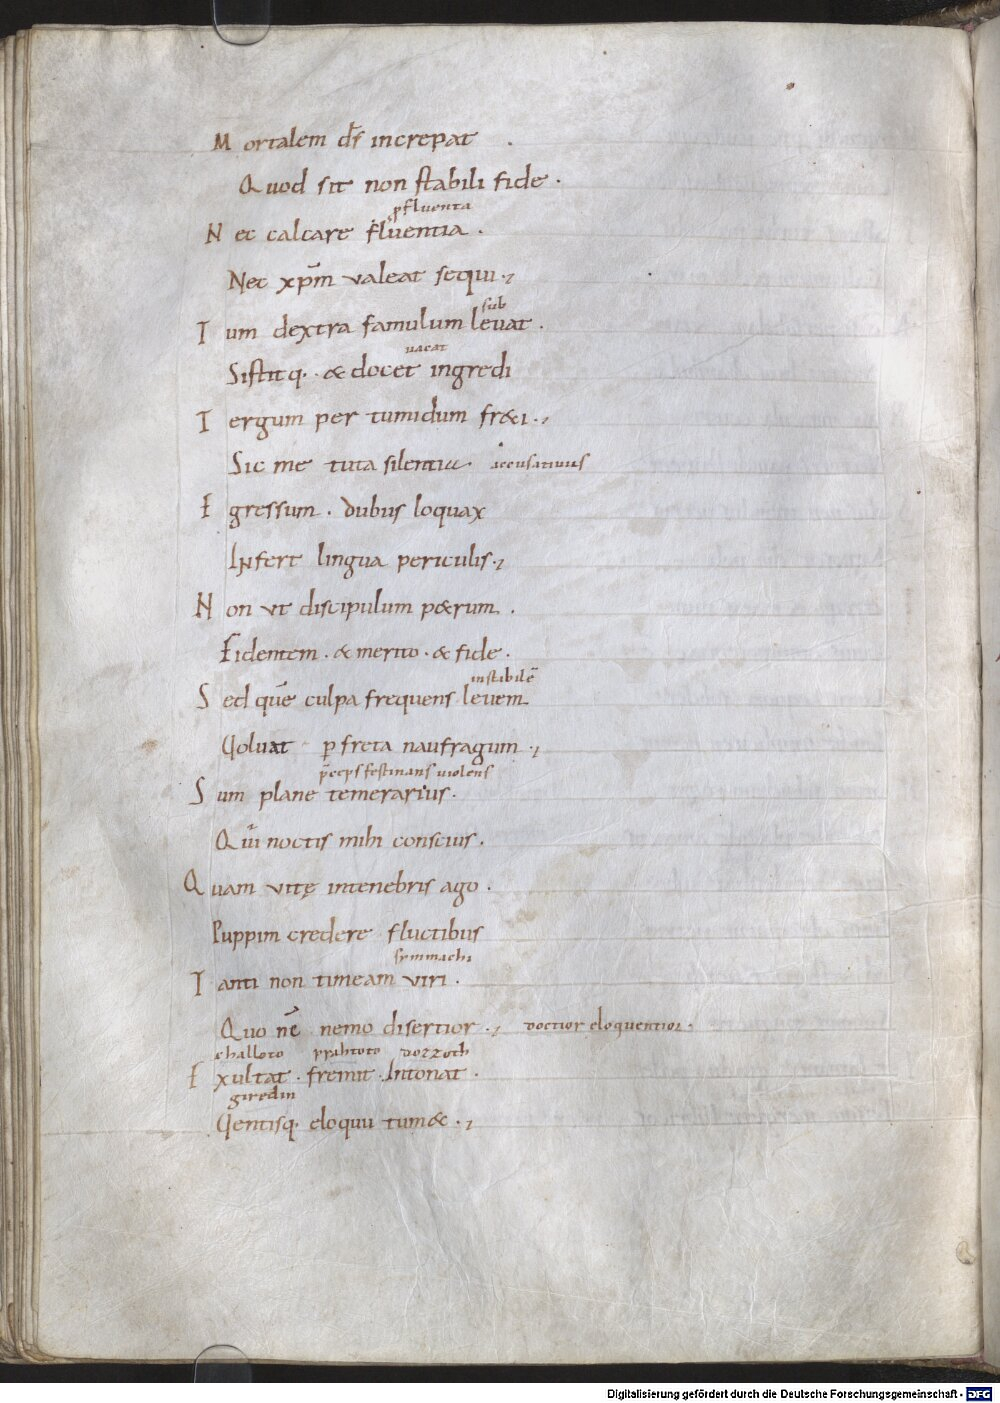 Mortalem d̄s increpat .
Quod sit non stabili fide .
ꝓfluenta
Nec calcare fluentia .
Nec xp̄m valeat sequi .,
sub
Tum dextra famulum levat .
vacat
Sistitq. & docet ingredi
Tergum per tumidum fr&i .,
Sic me tuta silentia . accusativus
Egressum . dubiis loquax
Infert lingua periculis .,
Non vt discipulum p&rum .
Fidentem . & merito . & fide .
instabilē
Sed quē culpa frequens levem
Voluat ꝑ freta naufragum .,
p̄ceps festinans violens
Sum plane temerarius .
Qui noctis mihi conscius .
Quam vitę intenebris ago .
Puppim credere fluctibus
symmachi
Tanti non timeam viri .
Quo nē nemo disertior ., doctior eloquentior .
Exultat . fremit . Intonat .
giredin
Ventisq. eloquii tum& .,